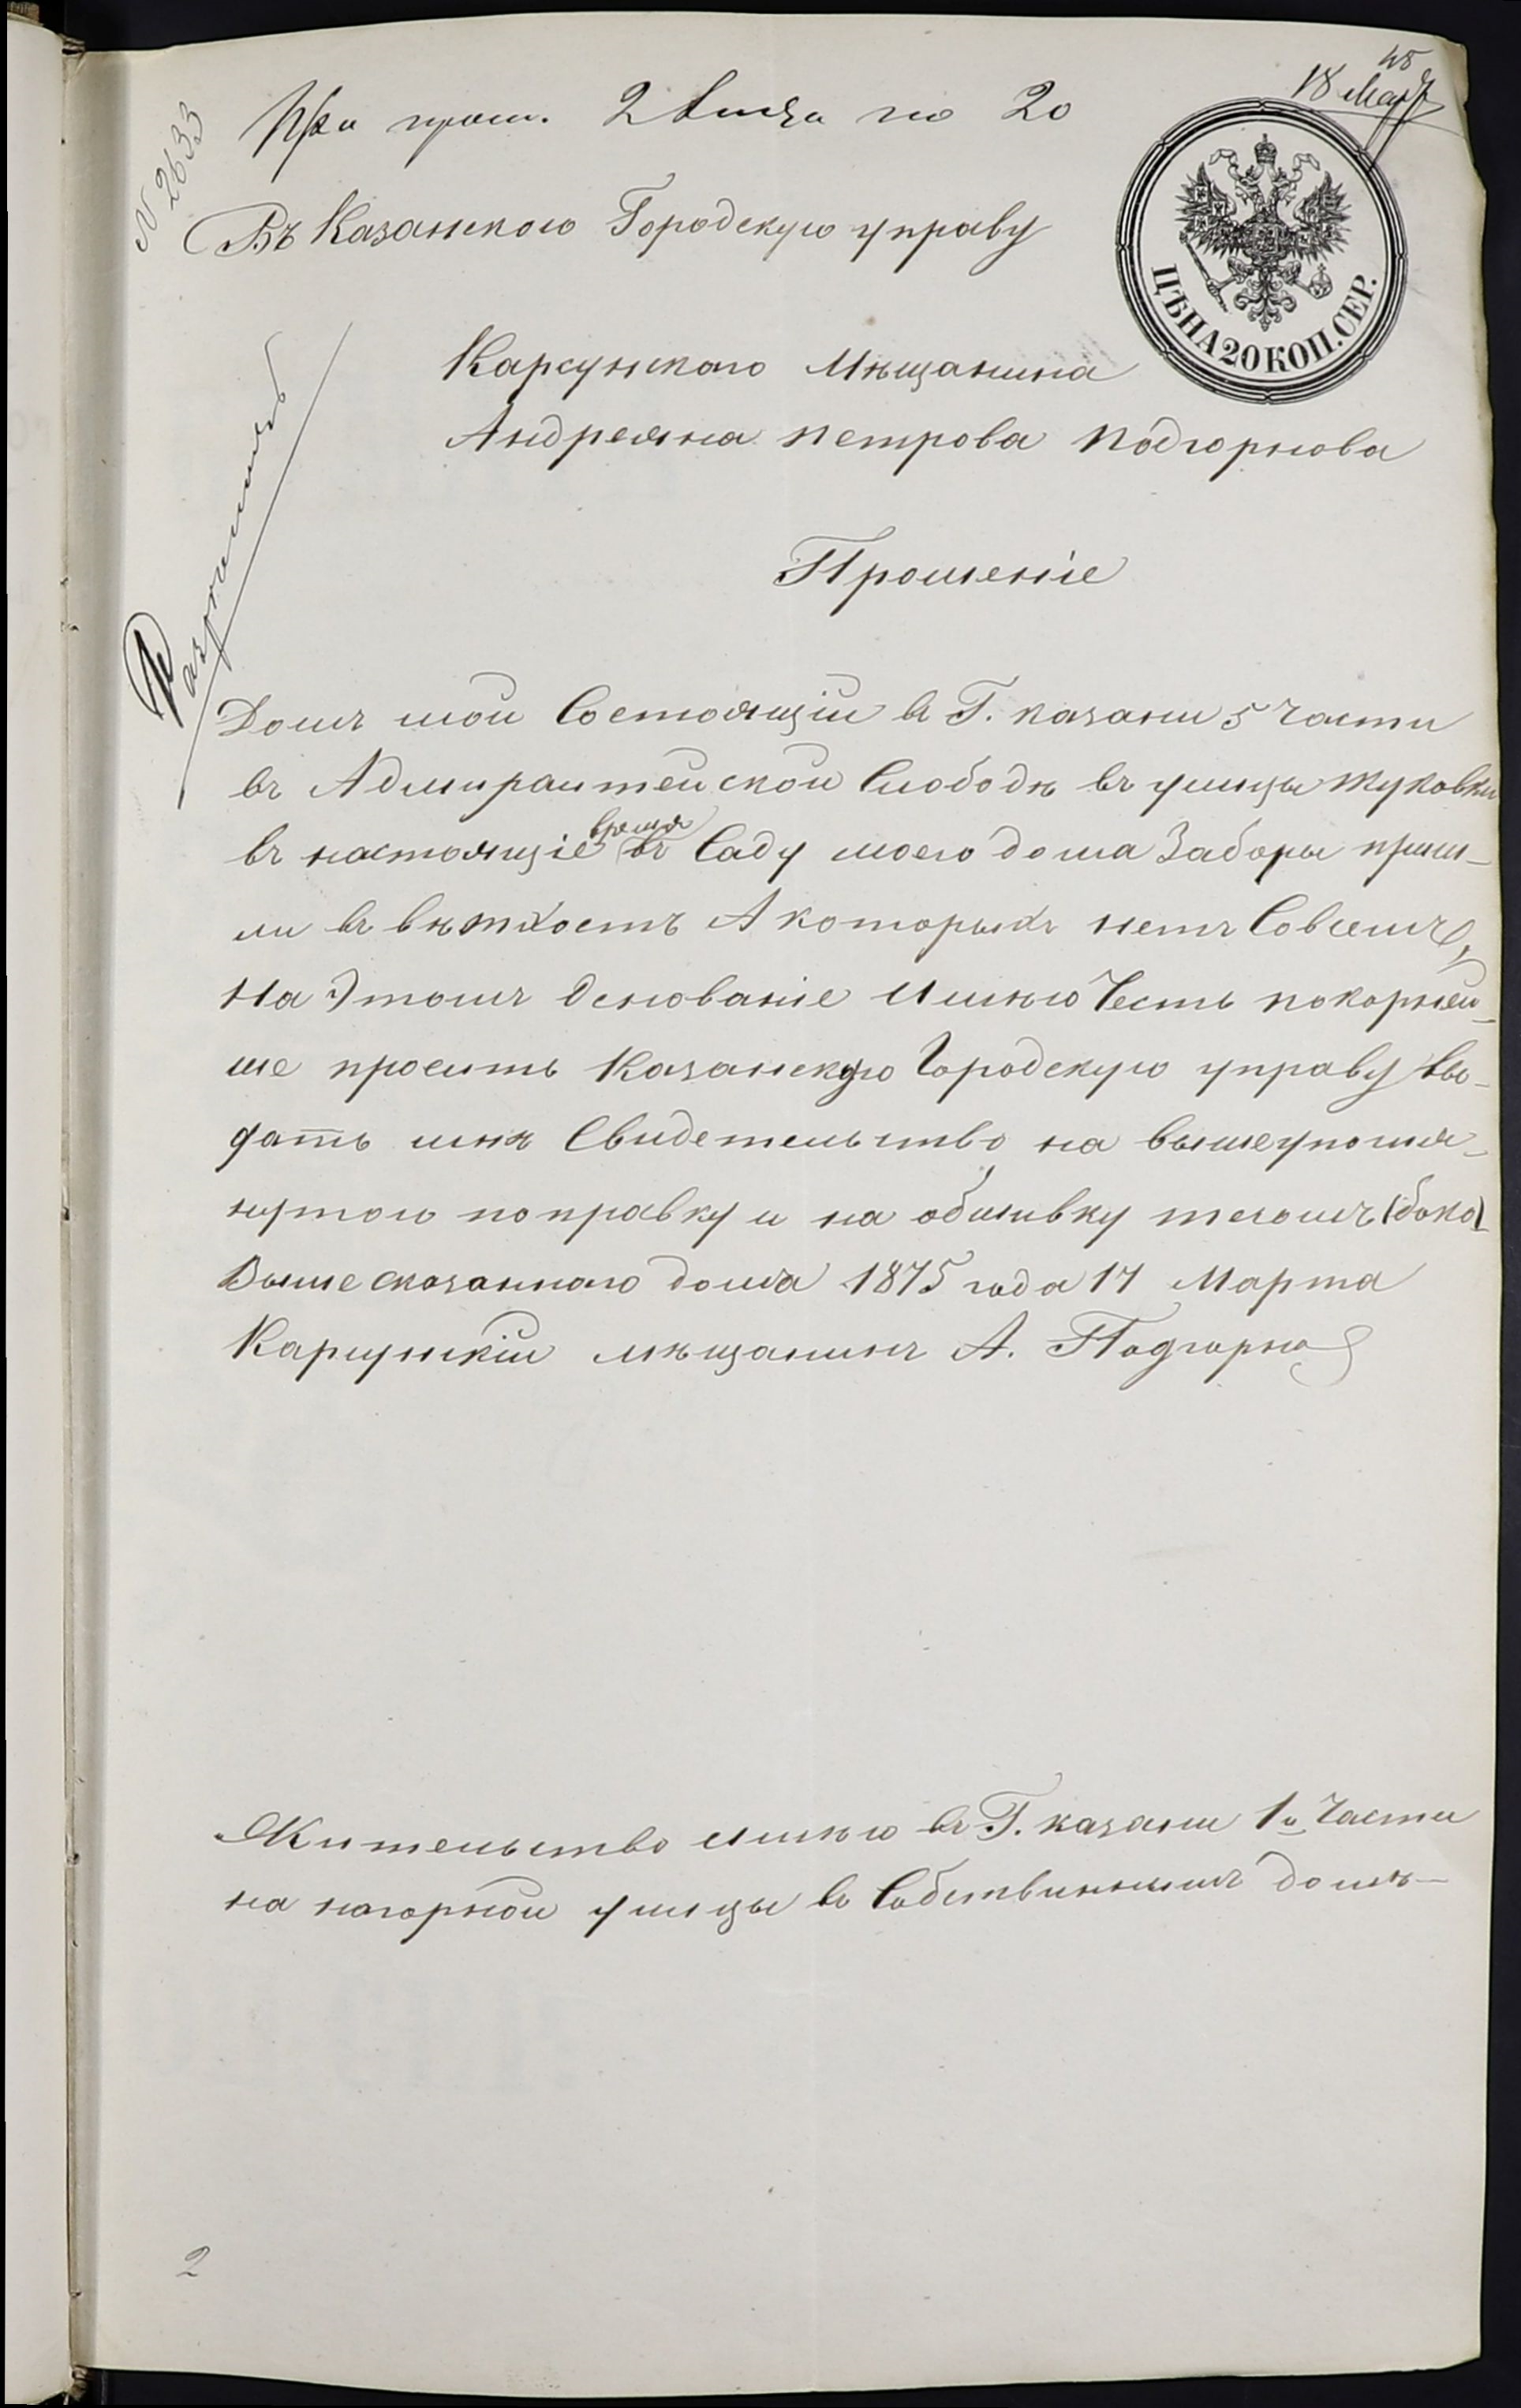 48
18 Мар
При прош. 2 листа по 20
N 2633
Въ Казанскою Городскую управу
ЦѢНА 20 КОП. СЕР.
Карсунского Мѣщанина
Андреяна Петрова Подгорнова
Разрѣшить
Прошеніе
Домъ мой Состоящій въ Г. казани 5 части
въ Адмиралтейской Слободѣ въ улицы Жуковки
въ настоящіе время въ Саду моего дома Заборы приш-
ли въ вѣтхость А которыхъ нетъ Совсемъ,
На Этомъ Основаніе Имѣю Честь покорней-
ше просить Казанскую Городскую управу вы-
дать мнѣ Свидетельство на вышеупомя-
нутою поправку и на обшивку тесомъ (боко)
Выше сказанного дома 1875 года 17 Марта
Карсунскій мѣщанинъ А. Подгорнов
Жительство имѣю въ Г. казани 1й Части
на нагорной улицы въ Собствинномъ домѣ
2